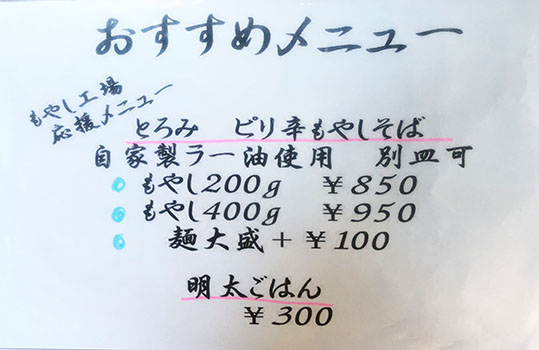 おすすめメニュー
もやし工場
応援メニュー
とろみ ピリ辛もやしそば
自家製ラー油使用 別皿可
もやし200g ¥850
もやし400g ¥950
麺大盛+¥100
明太ごはん
¥300